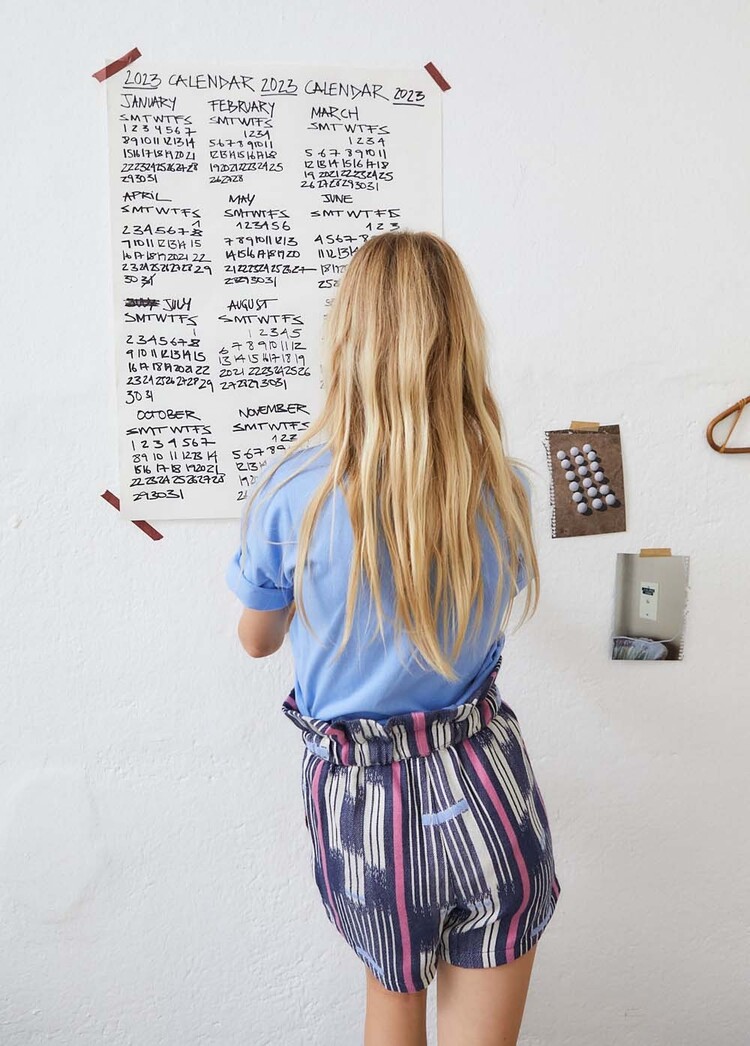 2023 CALENDAR 2023 CALENDAR 2023
JANUARY
SMTWTFS
1 2 3 4 5 6 7
8 9 10 11 12 13 14
15 16 17 18 19 20 21
22 23 24 25 26 27 28
29 30 31
FEBRUARY
SMTWTFS
1 2 3 4
5 6 7 8 9 10 11
12 13 14 15 16 17 18
19 20 21 22 23 24 25
26 27 28
MARCH
SMTWTFS
1 2 3 4
5 6 7 8 9 10 11
12 13 14 15 16 17 18
19 20 21 22 23 24 25
26 27 28 29 30 31
APRIL
SMTWTFS
1
2 3 4 5 6 7 8
9 10 11 12 13 14 15
16 17 18 19 20 21 22
23 24 25 26 27 28 29
30 31
MAY
SMTWTFS
1 2 3 4 5 6
7 8 9 10 11 12 13
14 15 16 17 18 19 20
21 22 23 24 25 26 27
28 29 30 31
JUNE
SMTWTFS
1 2 3
4 5 6 7 8
11 12 13
18
25
JULY
SMTWTFS
1
2 3 4 5 6 7 8
9 10 11 12 13 14 15
16 17 18 19 20 21 22
23 24 25 26 27 28 29
30 31
AUGUST
SMTWTFS
1 2 3 4 5
6 7 8 9 10 11 12
13 14 15 16 17 18 19
20 21 22 23 24 25 26
27 28 29 30 31
OCTOBER
SMTWTFS
1 2 3 4 5 6 7
8 9 10 11 12 13 14
15 16 17 18 19 20 21
22 23 24 25 26 27 28
29 30 31
NOVEMBER
SMTWTFS
1 2 3
5 6 7 8 9
12 13
19
26